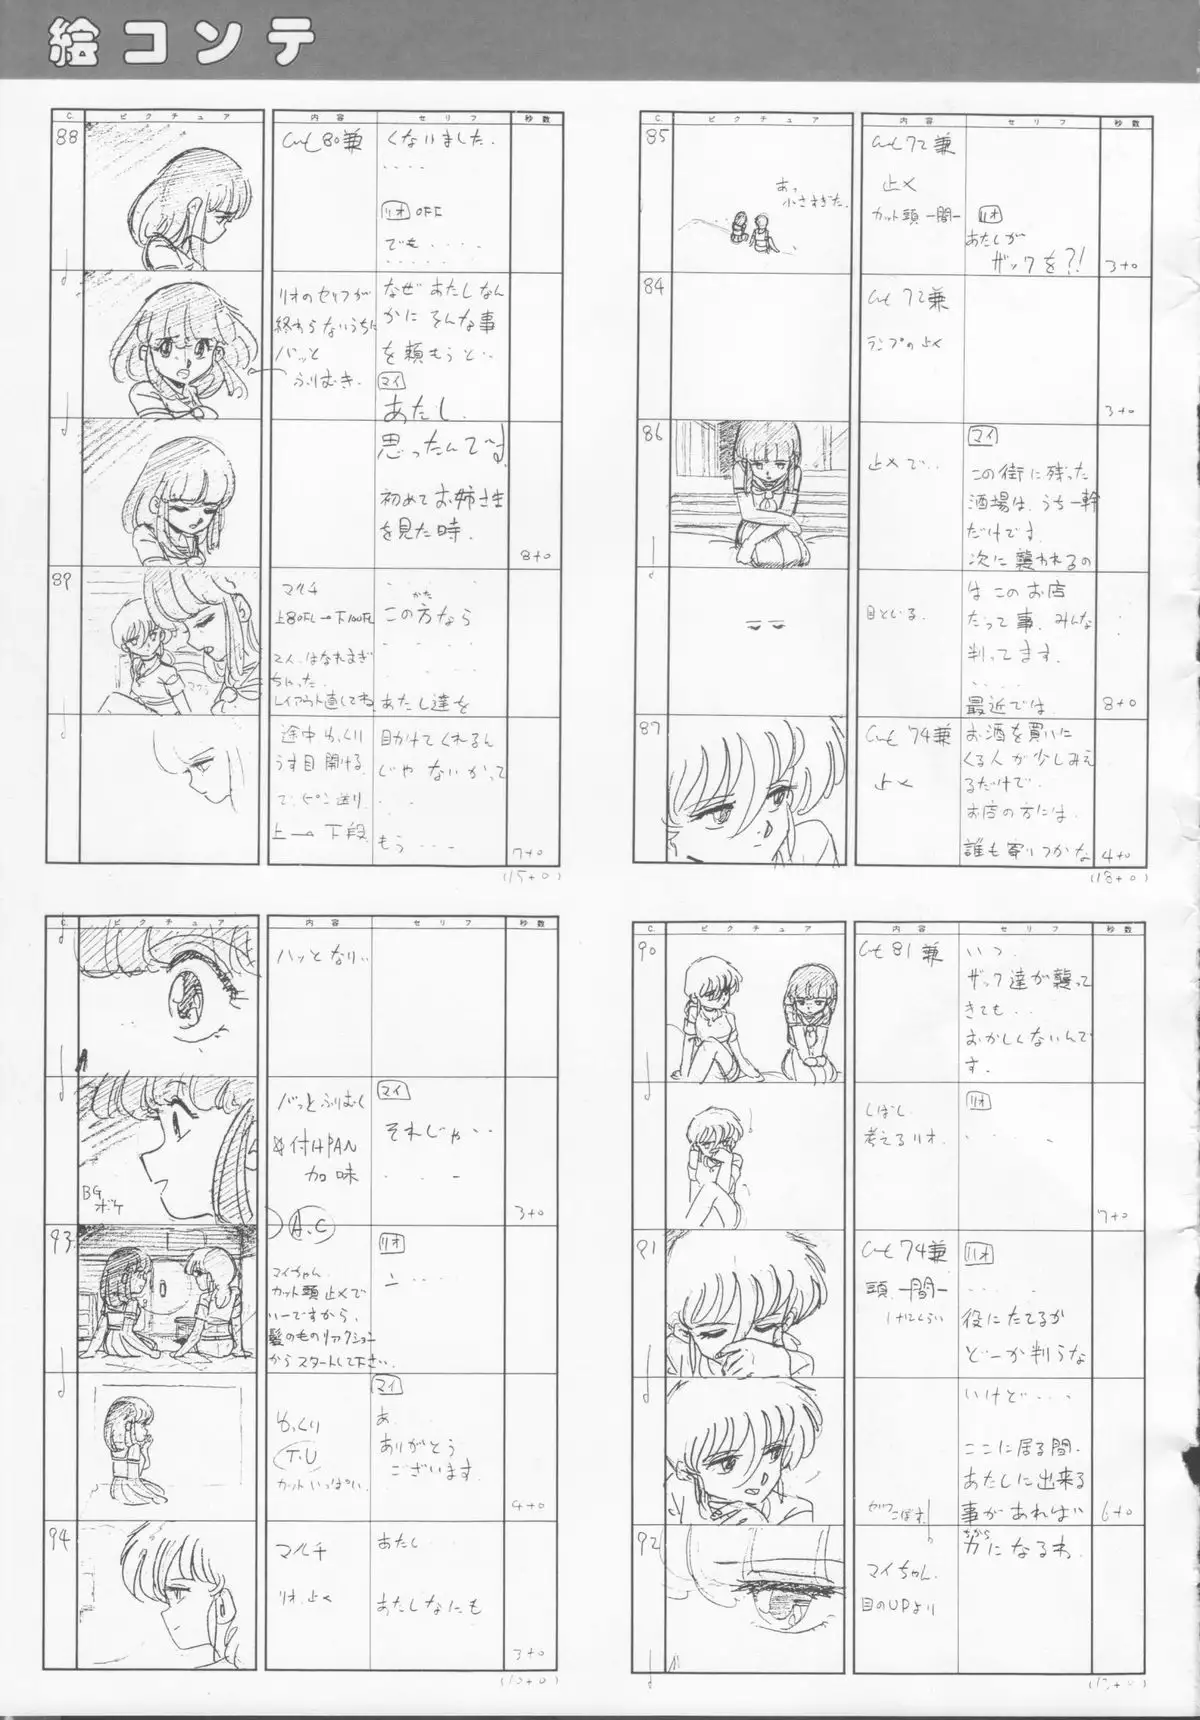 絵コンテ
C. ピクチュア 内容 セリフ 秒数
85
あっ
小さすぎた。
cut 72兼
止メ
カット頭一間
リオ
あたしが
ザックを?!
3+0
84
cut 72兼
ランプの止メ
3+0
86
止メで‥
マイ
この街に残った
酒場は、うち一軒
だけです。
次に襲われるの
目とじる。
は このお店
だって事、みんな
判ってます。
‥‥‥
最近では、
8+0
87
cut 74兼
止メ
お酒を買いに
くる人が少しみえ
るだけで、
お店の方には、
誰も寄りつかな
4+0
(18+0)
C. ピクチュア 内容 セリフ 秒数
88
cut 80兼
くないました。
‥‥
リオ OFF
でも‥‥
リオのセリフが
終わらないうちに
バッと
ふりむき。
なぜ あたしなん
かに そんな事
を頼もうと‥
マイ
あたし、
思ったんです。
初めてお姉さま
を見た時、
8+0
89
マクラ
マルチ
上80FL→下100FL
マイ、はなれすぎ
ちゃった。
レイアウト直してね
かた
この方なら
‥‥
あたし達を
途中 ゆっくり
うす目 開ける。
で、ピン送り
上→下段
助けてくれるん
じゃ ないかって
‥
もう‥‥
7+0
(15+0)
C. ピクチュア 内容 セリフ 秒数
90
cut 81兼
いつ、
ザック達が襲って
きても‥
おかしくないんで
す。
しばし
考えるリオ。
リオ
‥‥‥
7+0
91
cut 74兼
頭、一間
リオ
‥‥‥
役にたてるか
どーか判らな
いけど‥‥
ここに居る間、
あたしに出来る
事があれば
6+0
92
マイちゃん、
目のUPより
ちから
力になるわ。
(13+0)
C. ピクチュア 内容 セリフ 秒数
ハッとなり‥
BG
ボケ
バっとふりむく
付けPAN
加味
マイ
それじゃ‥
‥‥
3+0
A.C
93
マイちゃん
カット頭 止メで
いーですから、
髪のものリアクション
からスタートして下さい。
リオ
ゆっくり
T.U
カットいっぱい。
マイ
あ‥
ありがとう
ございます。
4+0
94
マルチ
リオ、止メ
あたし‥
あたしなにも
3+0
(10+0)